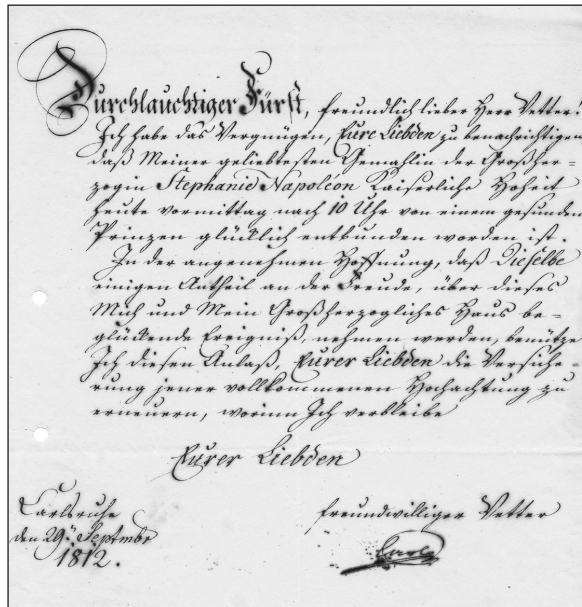 Durchlauchtiger Fürst, freundlich lieber Herr Vetter!
Ich habe das Vergnügen, Eure Liebden zu benachrichtigen
daß Meiner geliebtesten Gemahlin der Großher=
zogin Stephanie Napoléon Kaiserliche Hoheit
heute vormittag nach 10 Uhr von einem gesunden
Prinzen glücklich entbunden worden ist.
In der angenehmen Hoffnung, daß Dieselbe
einigen Antheil an der Freude, über dieses
Mich und Mein Großherzogliches Haus be=
glückende Ereigniß, nehmen werden, benütze
Ich diesen Anlaß, Eurer Liebden die Versiche=
rung jener vollkommenen Hochachtung zu
erneuern, worinn Ich verbleibe
Eurer Liebden
Carlsruhe
den 29. Septmbr
1812.
freundwilliger Vetter
Carl